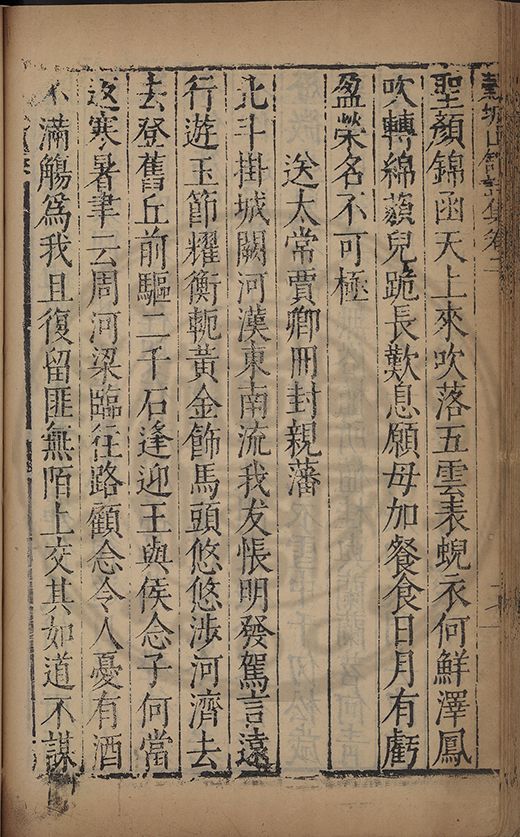 城山館詩集卷二
聖顏錦函天上來吹落五雲表蜺衣何鮮澤鳳
吹轉綿藐兒跪長歎息願母加餐食日月有虧
盈榮名不可極
送太常賈卿冊封親藩
北斗掛城闕河漢東南流我友悵明發駕言遠
行遊玉節耀衡軛黃金飾馬頭悠悠涉河濟去
去登舊丘前驅二千石逢迎王與侯念子何當
返寒暑聿云周河梁臨往路顧念令人憂有酒
不滿觴爲我且復留匪無陌上交其如道不謀